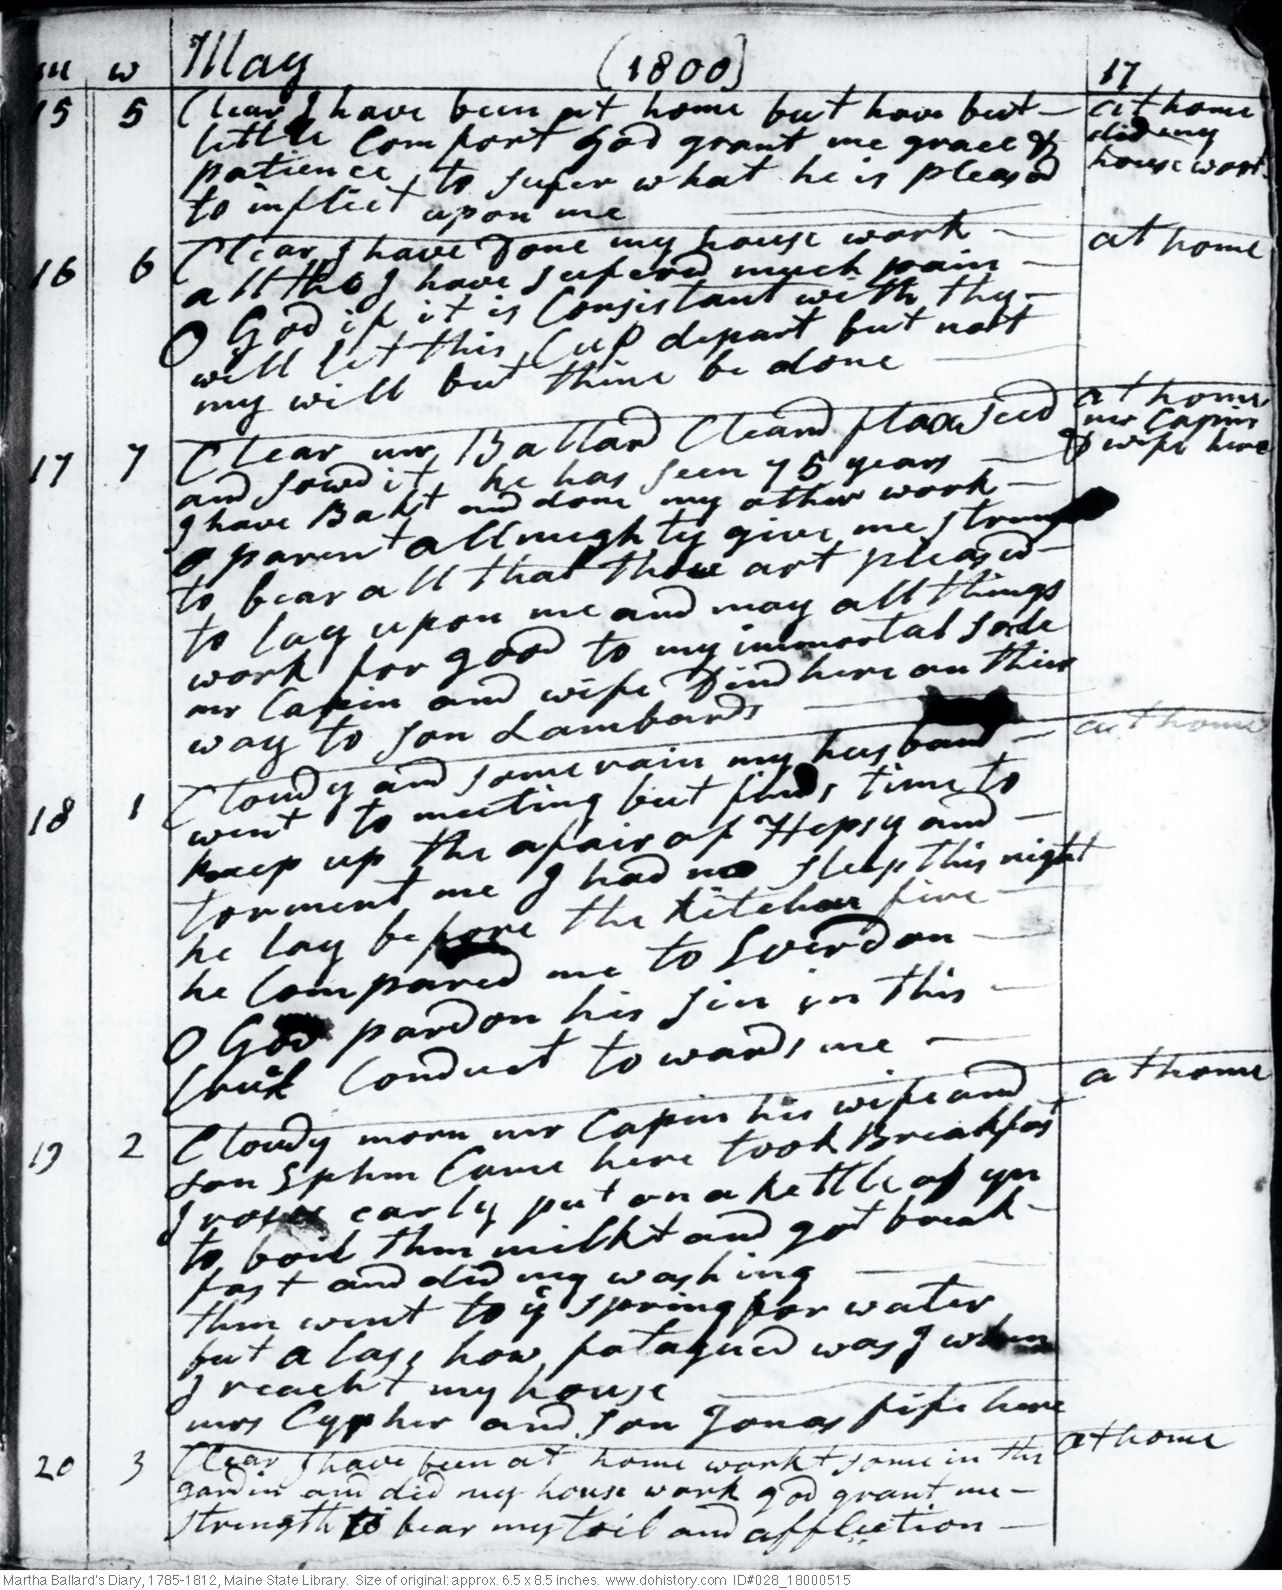 m w May (1800) 17
15 5 Clear I have been at home but have but at home
little Comfort God grant me grace & did my
patience to sufer what he is pleasd house work
to inflict upon me
16 6 Clear I have Done my house work at home
alltho I have sufered much pain
O God if it is Consistant with thy
will let this Cup depart but nott
my will but thine be done
17 7 Clear mr Ballard Cleand flax seed at home
and sowd it he has seen 75 years mr Capin
I have Bakt and done my other work & wife here
O parent allmighty give me
to bear all that thou art pleased
to lay upon me and may all things
work for good to my immortal sole
mr Capin and wife Dind here on thier
way to son Lambards
18 1 Cloudy and some rain my husband at home
went to meeting but finds time to
keep up the afair of Hepsy and
torment me I had no sleep this night
he lay before the kitchen fire
he Compared me to
O God pardon his sin in this
Cruil Conduct towards me
19 2 Cloudy morn mr Capin his wife and at home
son Ephm Came here took Breakfast
I rose early put on a kettle of yn
to boil then milkt and got break
fast and did my washing
then went to ye spring for water
but alass how fatagued was I when
I reacht my house
mrs Cypher and son Jonas fife here
20 3 Clear I have been at home workt some in the at home
gardin and did my house work god grant me
strength to bear my toil and affliction
Martha Ballard's Diary, 1785-1812, Maine State Library. Size of original: approx. 6.5 x 8.5 inches. www.dohistory.com ID#028_18000515